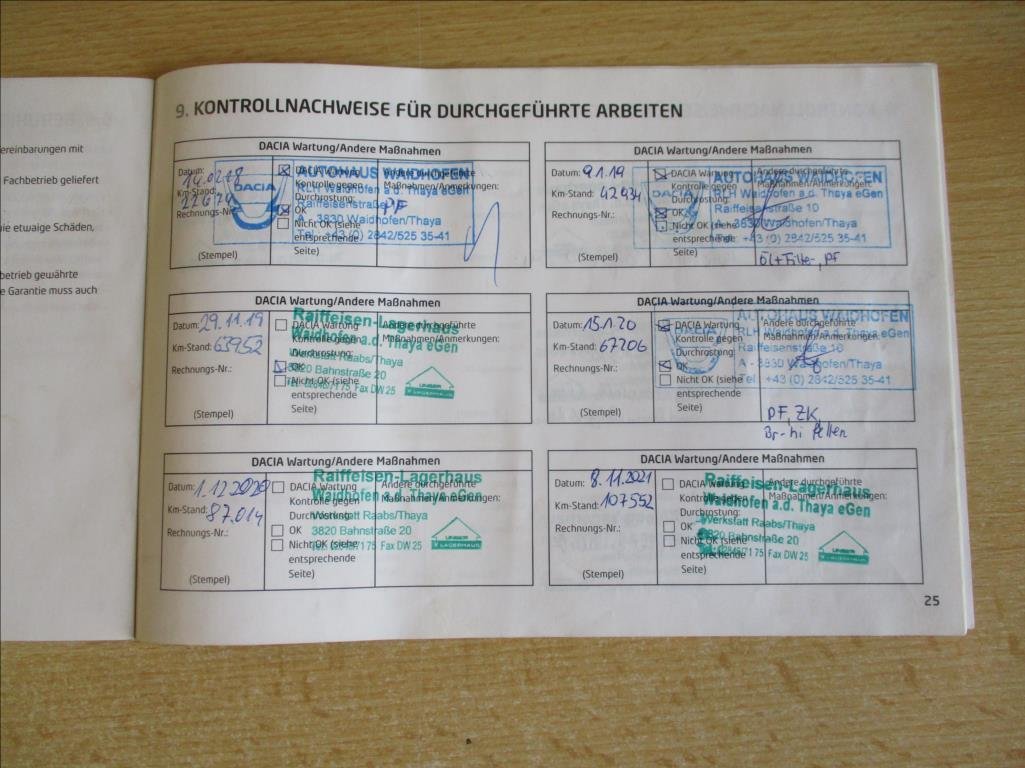 ereinbarungen mit
Fachbetrieb geliefert
nie etwaige Schäden,
betrieb gewährte
e Garantie muss auch
9. KONTROLLNACHWEISE FÜR DURCHGEFÜHRTE ARBEITEN
DACIA Wartung/Andere Maßnahmen
Datum:
Km-Stand:
Rechnungs-Nr.:
(Stempel)
DACIA
DACIA Wartung
Kontrolle gegen
Durchrostung:
OK
Nicht OK (siehe
entsprechende
Seite)
Andere durchgeführte
Maßnahmen/Anmerkungen:
PF
AUTOHAUS WAIDHOFEN
RLH Waidhofen a.d. Thaya eGen
Raiffeisenstraße
A - 3830 Waidhofen/Thaya
Tel. +43 (0) 2842/525 35-41
DACIA Wartung/Andere Maßnahmen
Datum: 9.1.19
Km-Stand: 42434
Rechnungs-Nr.:
(Stempel)
DACIA Wartung
Kontrolle gegen
Durchrostung:
OK
Nicht OK (siehe
entsprechende
Seite)
Andere durchgeführte
Maßnahmen/Anmerkungen:
AUTOHAUS WAIDHOFEN
RLH Waidhofen a.d. Thaya eGen
Raiffeisenstraße 10
A - 3830 Waidhofen/Thaya
Tel. +43 (0) 2842/525 35-41
Öl+Filter, PF
DACIA Wartung/Andere Maßnahmen
Datum: 29.11.19
Km-Stand: 63952
Rechnungs-Nr.:
(Stempel)
DACIA Wartung
Kontrolle gegen
Durchrostung:
OK
Nicht OK (siehe
entsprechende
Seite)
Andere durchgeführte
Maßnahmen/Anmerkungen:
Raiffeisen-Lagerhaus
Waidhofen a.d. Thaya eGen
Werkstatt Raabs/Thaya
3820 Bahnstraße 20
Tel. 02846/7175 Fax DW 25
UNSER
LAGERHAUS
DACIA Wartung/Andere Maßnahmen
Datum: 15.1.20
Km-Stand: 67206
Rechnungs-Nr.:
(Stempel)
DACIA
DACIA Wartung
Kontrolle gegen
Durchrostung:
OK
Nicht OK (siehe
entsprechende
Seite)
Andere durchgeführte
Maßnahmen/Anmerkungen:
AUTOHAUS WAIDHOFEN
RLH Waidhofen a.d. Thaya eGen
Raiffeisenstraße 10
A - 3830 Waidhofen/Thaya
Tel. +43 (0) 2842/525 35-41
PF, ZK,
DACIA Wartung/Andere Maßnahmen
Datum: 1.12.2020
Km-Stand: 87.014
Rechnungs-Nr.:
(Stempel)
DACIA Wartung
Kontrolle gegen
Durchrostung:
OK
Nicht OK (siehe
entsprechende
Seite)
Andere durchgeführte
Maßnahmen/Anmerkungen:
Raiffeisen-Lagerhaus
Waidhofen a.d. Thaya eGen
Werkstatt Raabs/Thaya
3820 Bahnstraße 20
Tel. 02846/7175 Fax DW 25
UNSER
LAGERHAUS
DACIA Wartung/Andere Maßnahmen
Datum: 8.11.2021
Km-Stand: 107552
Rechnungs-Nr.:
(Stempel)
DACIA Wartung
Kontrolle gegen
Durchrostung:
OK
Nicht OK (siehe
entsprechende
Seite)
Andere durchgeführte
Maßnahmen/Anmerkungen:
Raiffeisen-Lagerhaus
Waidhofen a.d. Thaya eGen
Werkstatt Raabs/Thaya
3820 Bahnstraße 20
02846/7175 Fax DW 25
UNSER
LAGERHAUS
25